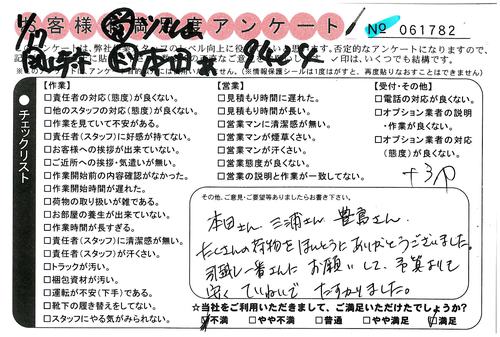 お客様満足度アンケート
№ 061782
【作業】
□責任者の対応(態度)が良くない。
□他のスタッフの対応(態度)が良くない。
□作業を見ていて不安がある。
□責任者(スタッフ)に好感が持てない。
□お客様への挨拶が出来ていない。
□ご近所への挨拶・気遣いが無い。
□作業開始前の内容確認がなかった。
□作業開始時間が遅れた。
□荷物の取り扱いが雑である。
□お部屋の養生が出来ていない。
□作業時間が長すぎる。
□責任者(スタッフ)に清潔感が無い。
□責任者(スタッフ)が汗くさい。
□トラックが汚い。
□梱包資材が汚い。
□運転が不安(下手)である。
□靴下の履き替えをしてない。
□スタッフにやる気がみられない。
【営業】
□見積もり時間に遅れた。
□見積もり時間が長い。
□営業マンに清潔感が無い。
□営業マンが煙草くさい。
□営業マンが汗くさい。
□営業態度が良くない。
□営業の説明と作業が一致してない。
【受付・その他】
□電話の対応が良くない。
□オプション業者の説明
・作業が良くない。
□オプション業者の対応
(態度)が良くない。
チェックリスト
その他、ご意見・ご要望等ありましたらお書き下さい。
本田さん 三浦さん 豊島さん、
たくさんの荷物をほんとうにありがとうございました。
引越し一番さんに お願いして、予算よりも
安く ていねいで たすかりました。
☆当社をご利用いただきまして、ご満足いただけたでしょうか?
□不満 □やや不満 □普通 □やや満足 □満足